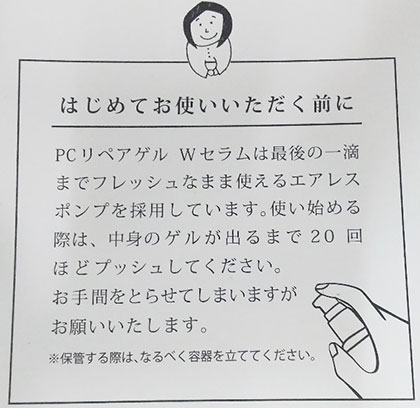 はじめてお使いいただく前に
PCリペアゲル Wセラムは最後の一滴
までフレッシュなまま使えるエアレス
ポンプを採用しています。使い始める
際は、中身のゲルが出るまで20回
ほどプッシュしてください。
お手間をとらせてしまいますが
お願いいたします。
※保管する際は、なるべく容器を立ててください。